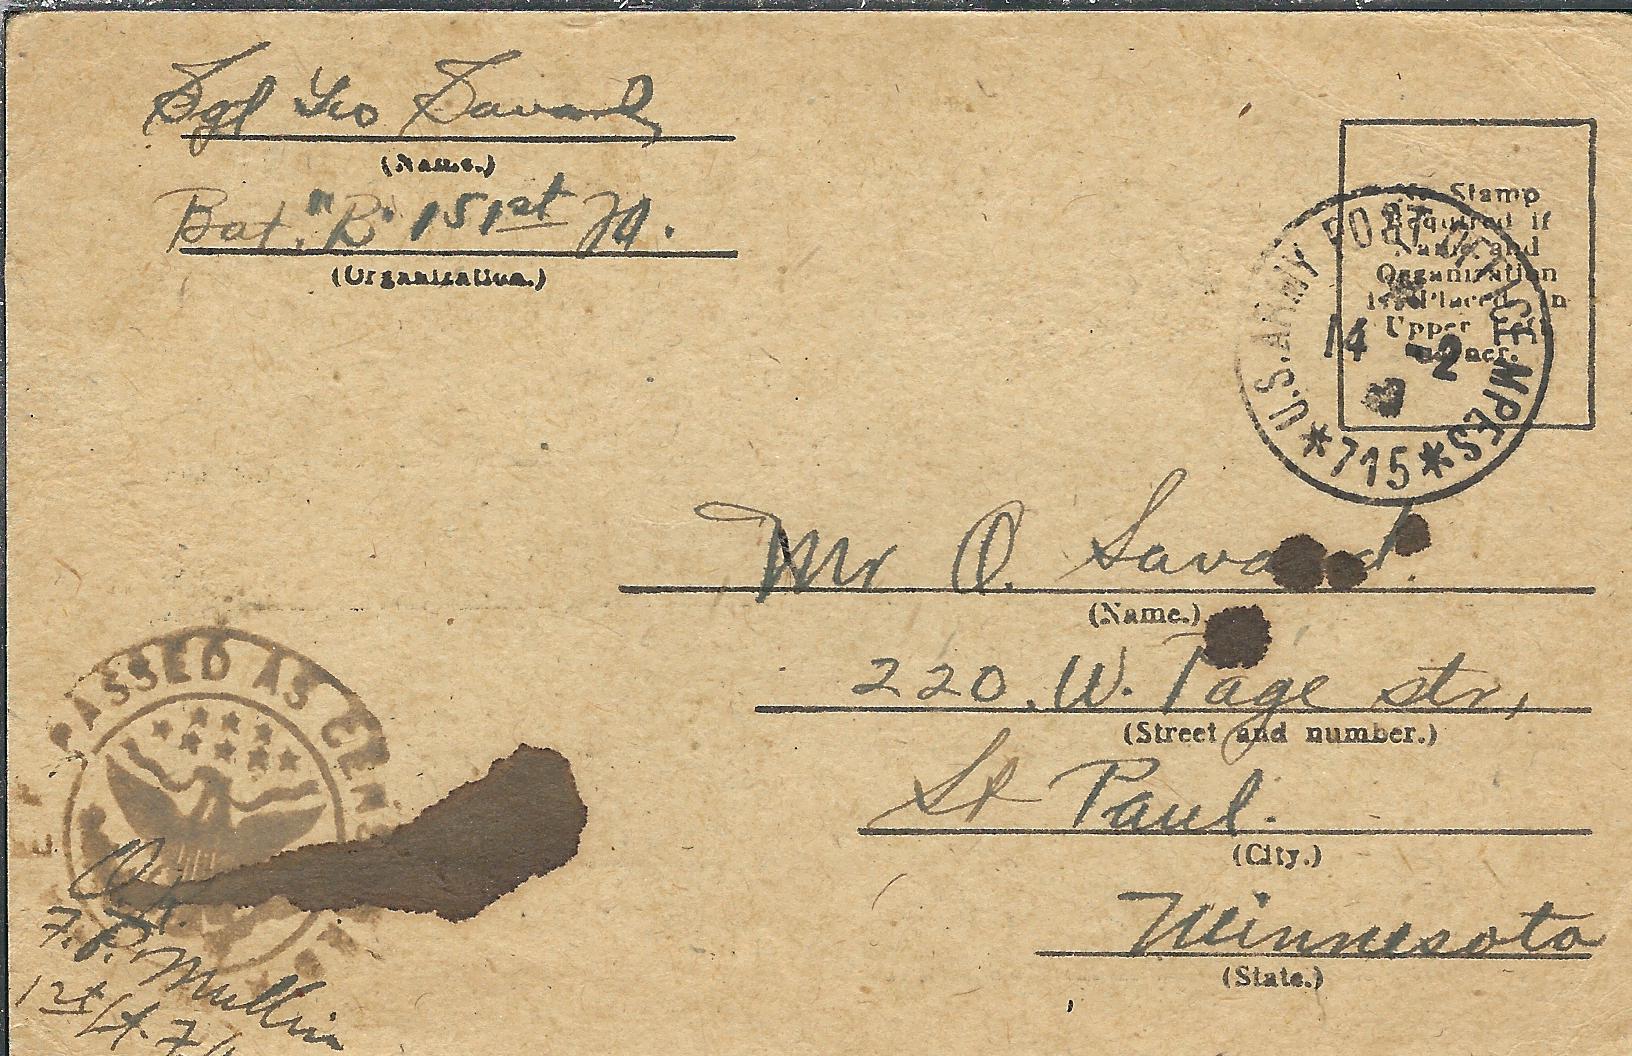 Sgt Leo Savard
(Name.)
Bat. "B" 151st FA.
(Organization.)
No Stamp
Required if
Name and
Organization
is Placed in
Upper Left
Corner.
U.S. ARMY POST OFFICE MPES
14 -2
*715*
Mr O. Savard.
(Name.)
220. W. Page str,
(Street and number.)
St Paul.
(City.)
Minnesota
(State.)
PASSED AS CENS
O.K.
F. P. Mullin
1st Lt. F